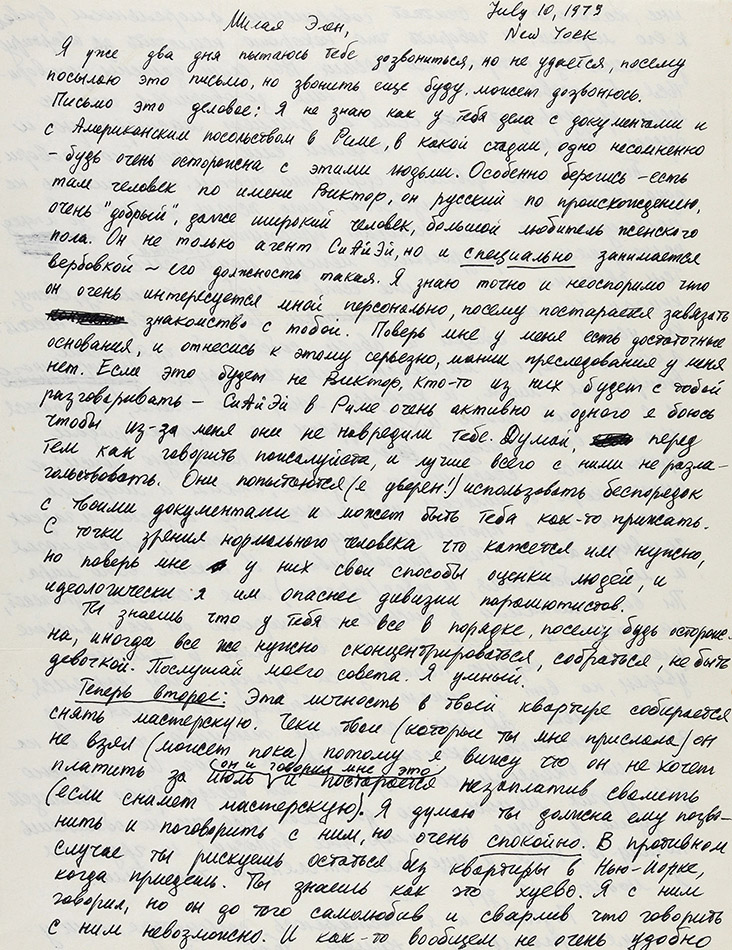 July 10, 1979
Милая Эен,
New York
Я уже два дня пытаюсь тебе дозвониться, но не удается, посему
посылаю это письмо, но звонить еще буду, может дозвонюсь.
Письмо это деловое: Я не знаю как у тебя дела с документами и
с Американским посольством в Риме, в какой стадии, одно несомненно
– будь очень осторожна с этими людьми. Особенно берегись – есть
там человек по имени Виктор, он русский по происхождению,
очень "добрый", даже широкий человек, большой любитель женского
пола. Он не только агент СиАйЭй, но и специально занимается
вербовкой – его должность такая. Я знаю точно и неоспоримо что
он очень интересуется мной персонально, посему постарается завязать
знакомство с тобой. Поверь мне у меня есть достаточные
основания, и отнесись к этому серьезно, мании преследования у меня
нет. Если это будет не Виктор, кто-то из них будет с тобой
разговаривать – СиАйЭй в Риме очень активно и одного я боюсь
чтобы из-за меня они не навредили тебе. Думай, перед
тем как говорить пожалуйста, и лучше всего с ними не разгла-
гольствовать. Они попытаются (я уверен!) использовать беспорядок
с твоими документами и может быть тебя как-то прижать.
С точки зрения нормального человека что кажется им нужно,
но поверь мне у них свои способы оценки людей, и
идеологически я им опаснее дивизии парашютистов.
Ты знаешь что у тебя не все в порядке, посему будь осторож-
на, иногда все же нужно сконцентрироваться, собраться, не быть
девочкой. Послушай моего совета. Я умный.
Теперь второе: Эта личность в твоей квартире собирается
снять мастерскую. Чеки твои (которые ты мне прислала) он
не взял (может пока) потому я вижу что он не хочет
платить за июль (он и говорил мне это) и постарается незаплатив свалить
(если снимет мастерскую). Я думаю ты должна ему позво-
нить и поговорить с ним, но очень спокойно. В противном
случае ты рискуешь остаться без квартиры в Нью-Йорке,
когда приедешь. Ты знаешь как это хуево. Я с ним
говорил, но он до того самолюбив и сварлив что говорить
с ним невозможно. И как-то вообщем не очень удобно